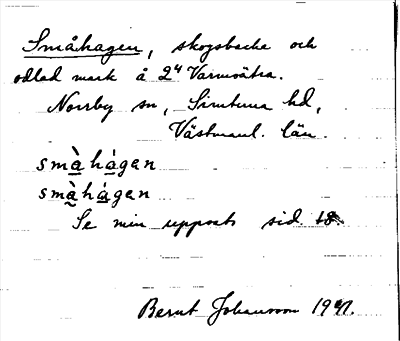 Småhagen, skogsbacke och
odlad mark å 2⁴ Varmsätra.
Norrby sn, Simtuna hd,
Västmanl. län.
småhågen
småhågen
Se min uppsats sid. 18.
Bernt Johansson 1941.